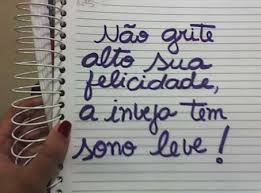 Não grite
alto sua
felicidade,
a inveja tem
sono leve!